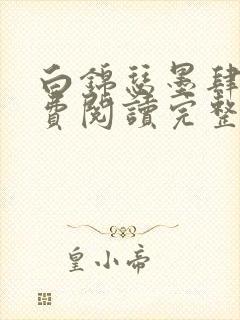 白錦瑟墨肆
費閱讀完整
皇小帝